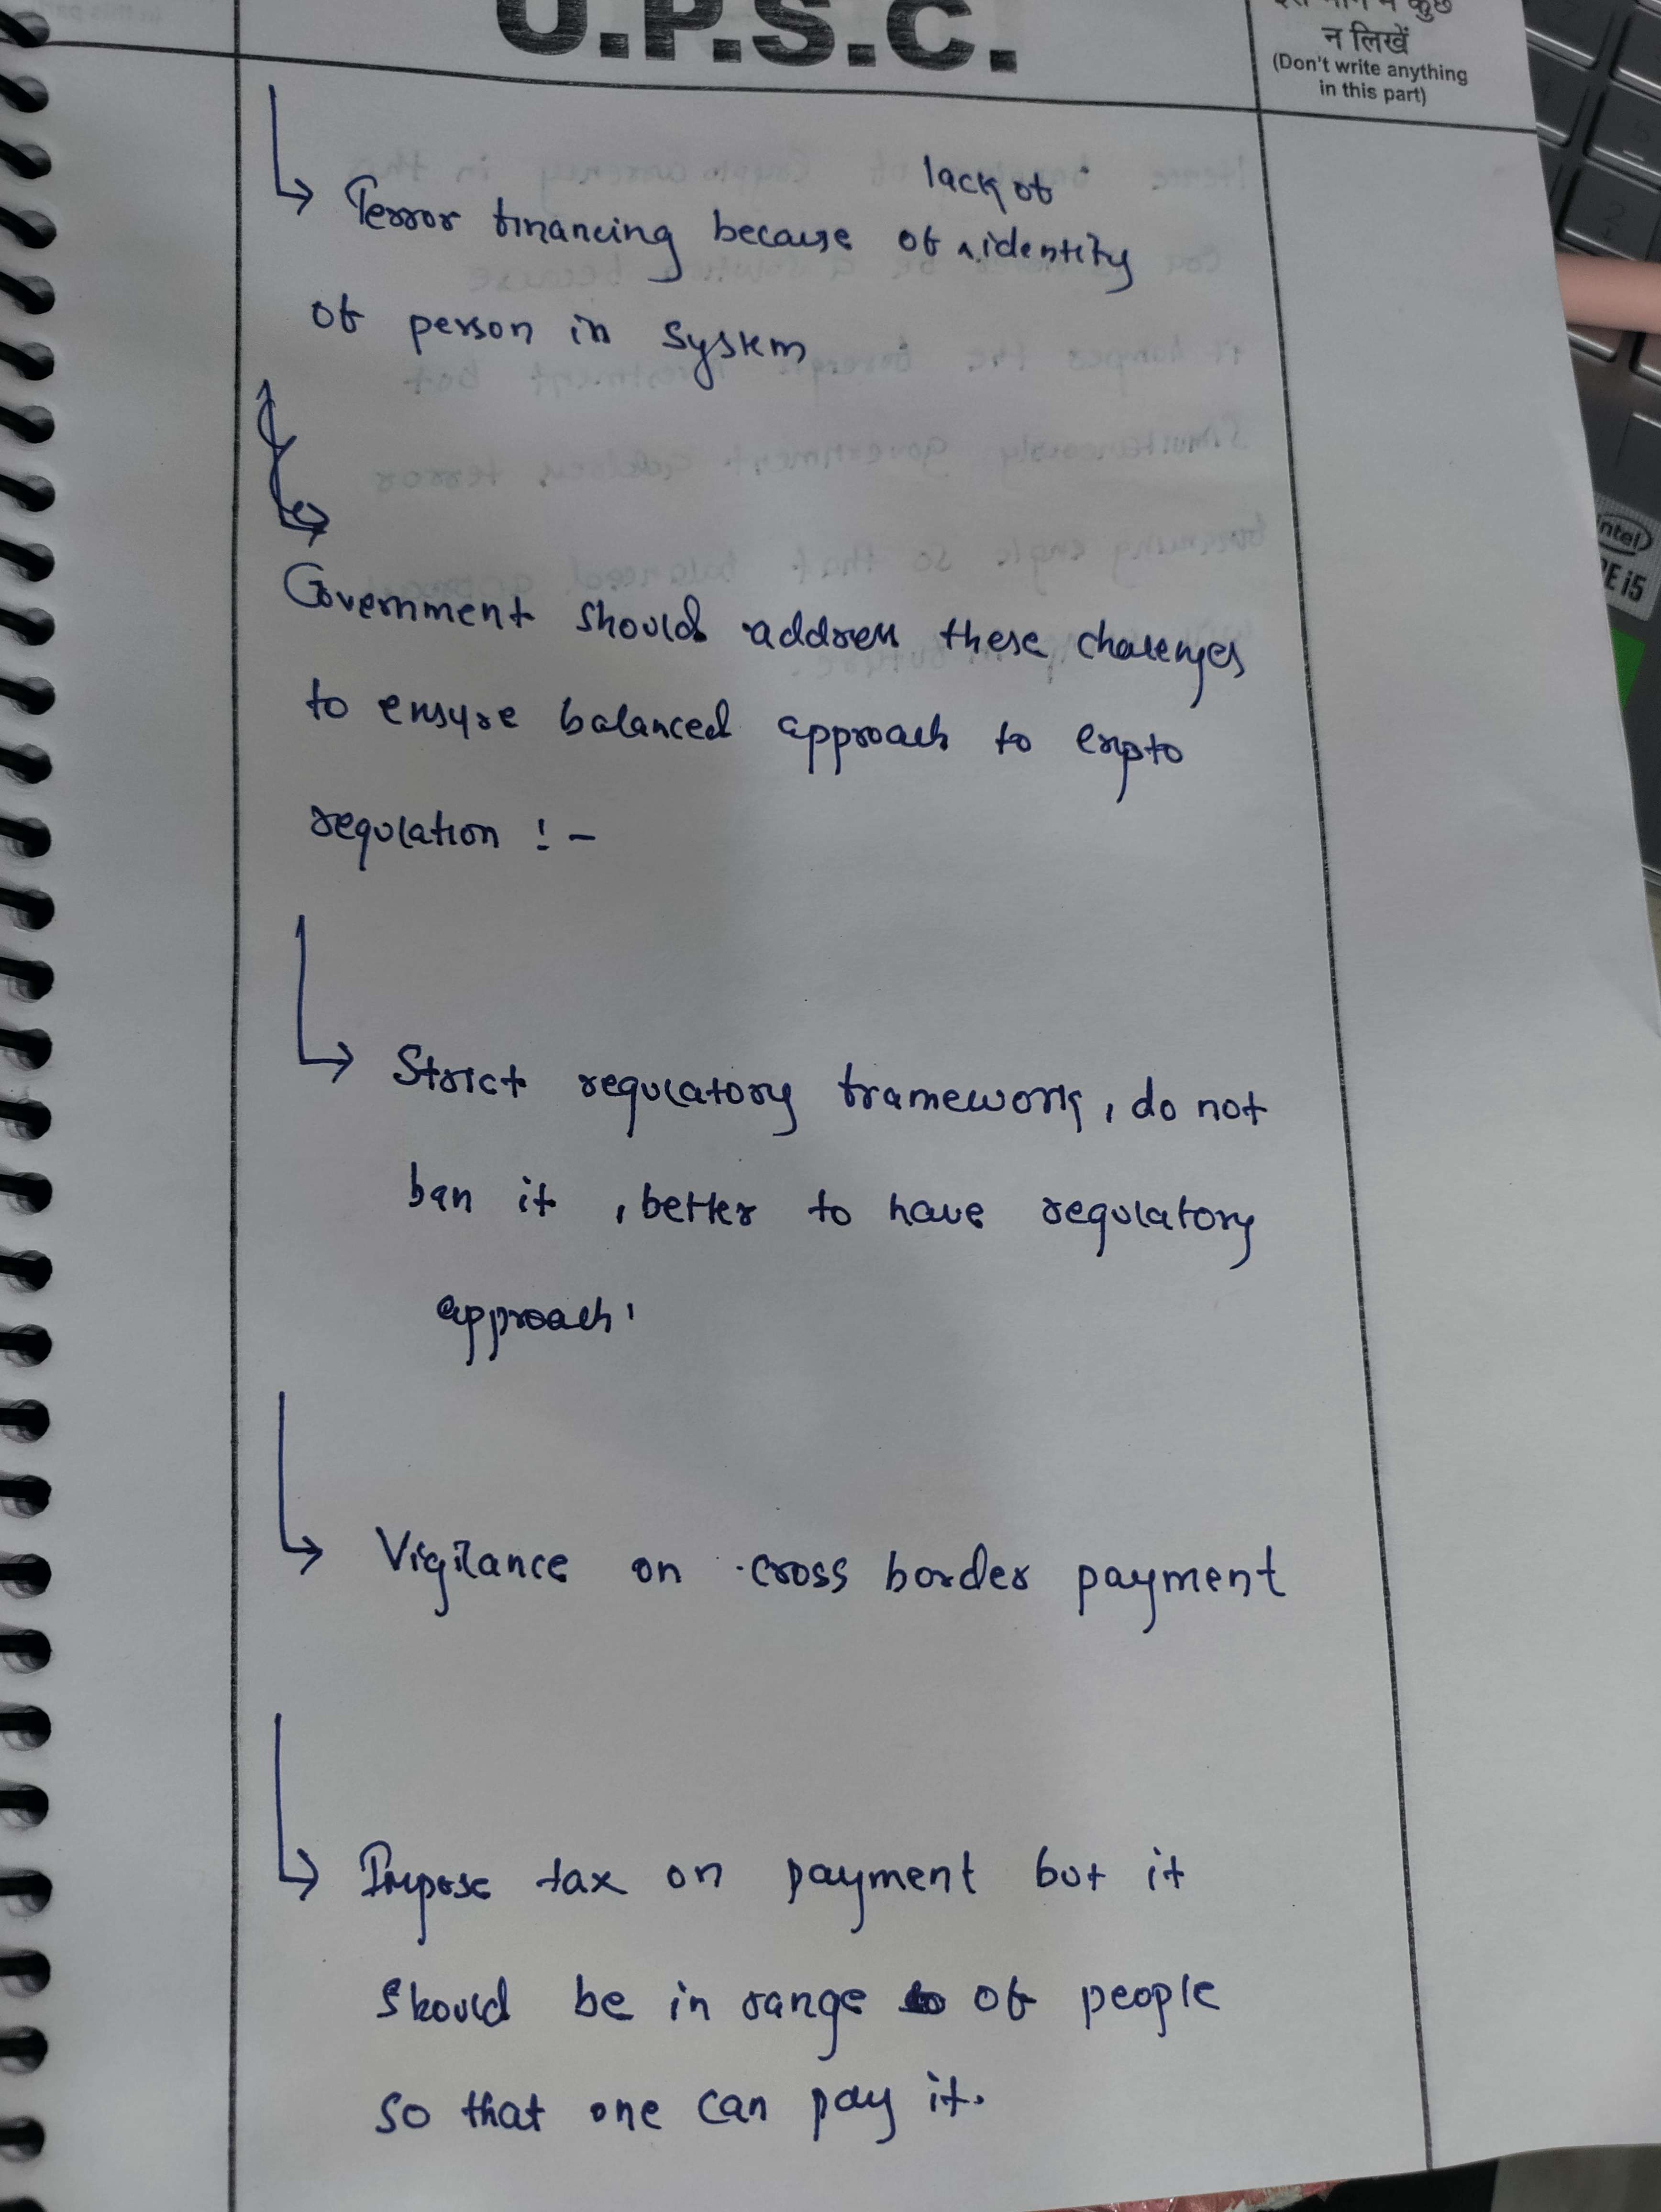 U.P.S.C.
न लिखें
(Don't write anything
in this part)
lack of
Terror financing because of identity
of person in System
Government should address these challenges
to ensure balanced approach to crypto
regulation :-
Strict regulatory framework, do not
ban it, better to have regulatory
approach.
Vigilance on cross border payment
Impose tax on payment but it
should be in range of people
so that one can pay it.
intel
i5